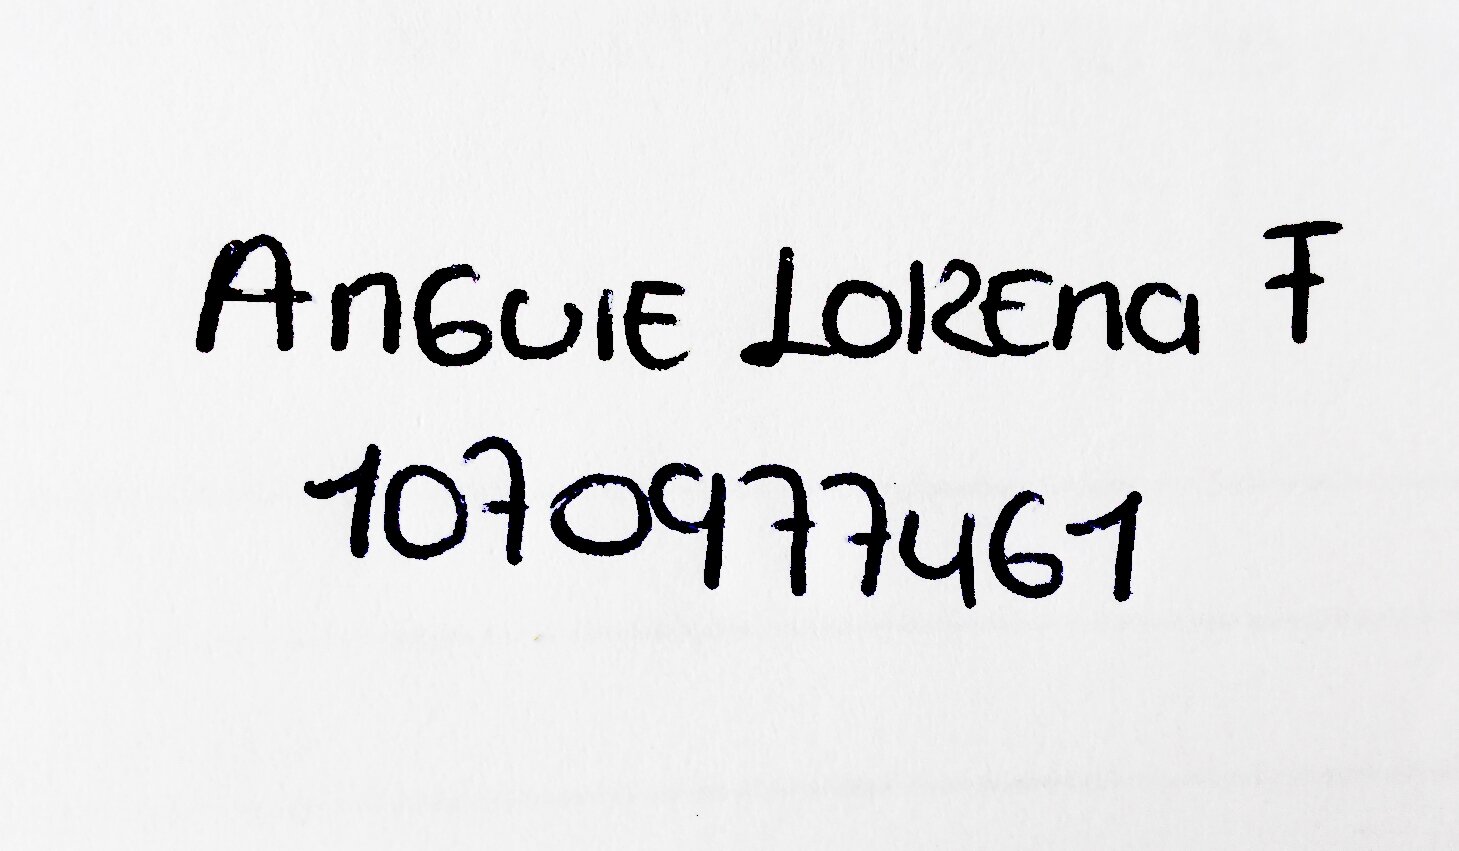 Anguie Lorena F
1070977461